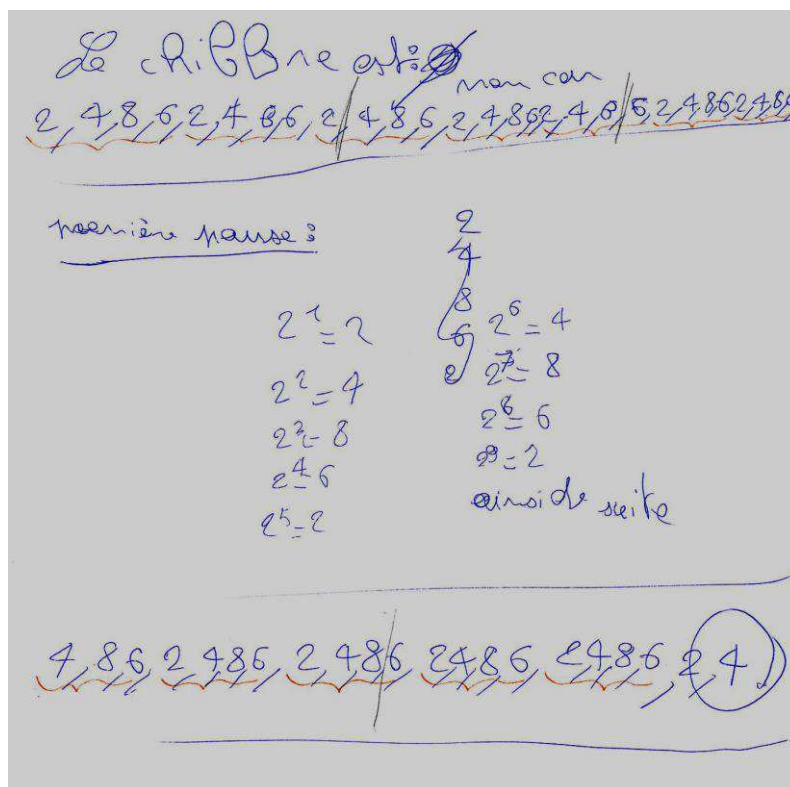 Le chiffre est:
non car
2,4,8,6,2,4,8,6,2,4,8,6,2,4,8,6,2,4,8,6,2,4,8,6,2,4,8,6
première pause:
2
4
8
6
2
2^1=2
2^2=4
2^3=8
2^4=6
2^5=2
2^6=4
2^7=8
2^8=6
2^9=2
ainsi de suite
4,8,6,2,4,8,6,2,4,8,6,2,4,8,6,2,4,8,6,2,4